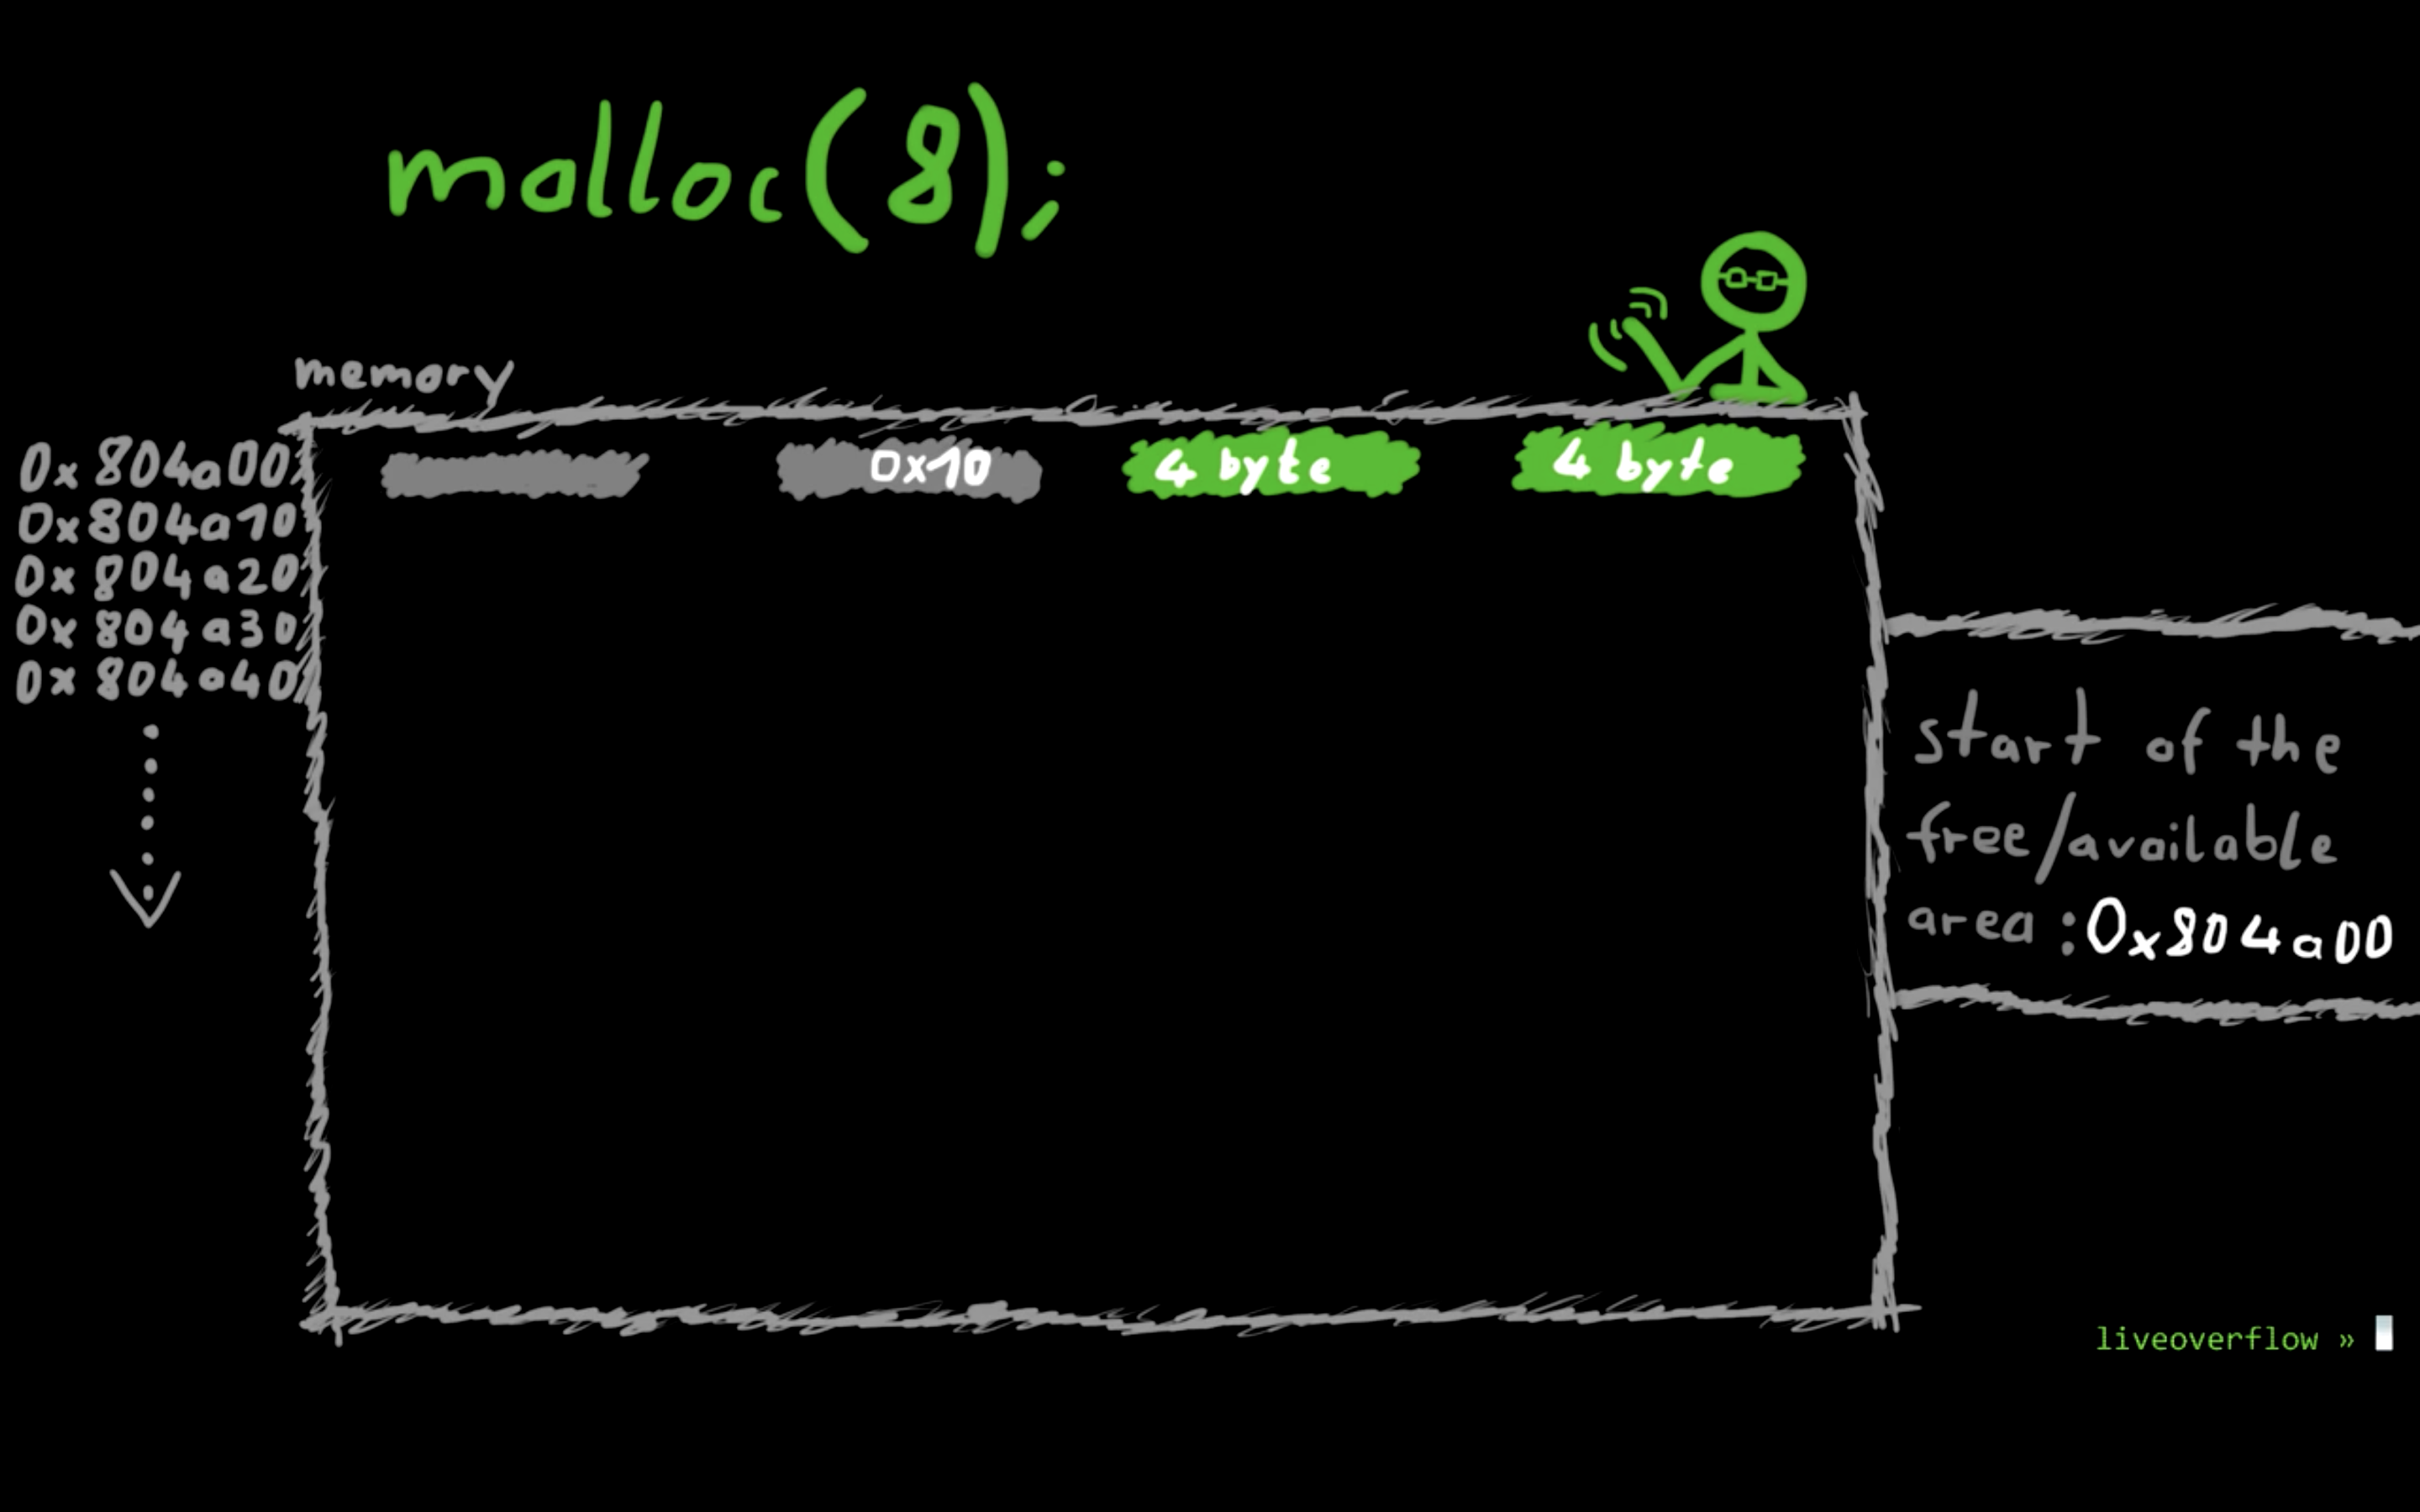 malloc(8);
memory
0x804a00
0x10
4 byte
4 byte
0x804a10
0x804a20
0x804a30
0x804a40
start of the
free/available
area:0x804a00
liveoverflow »